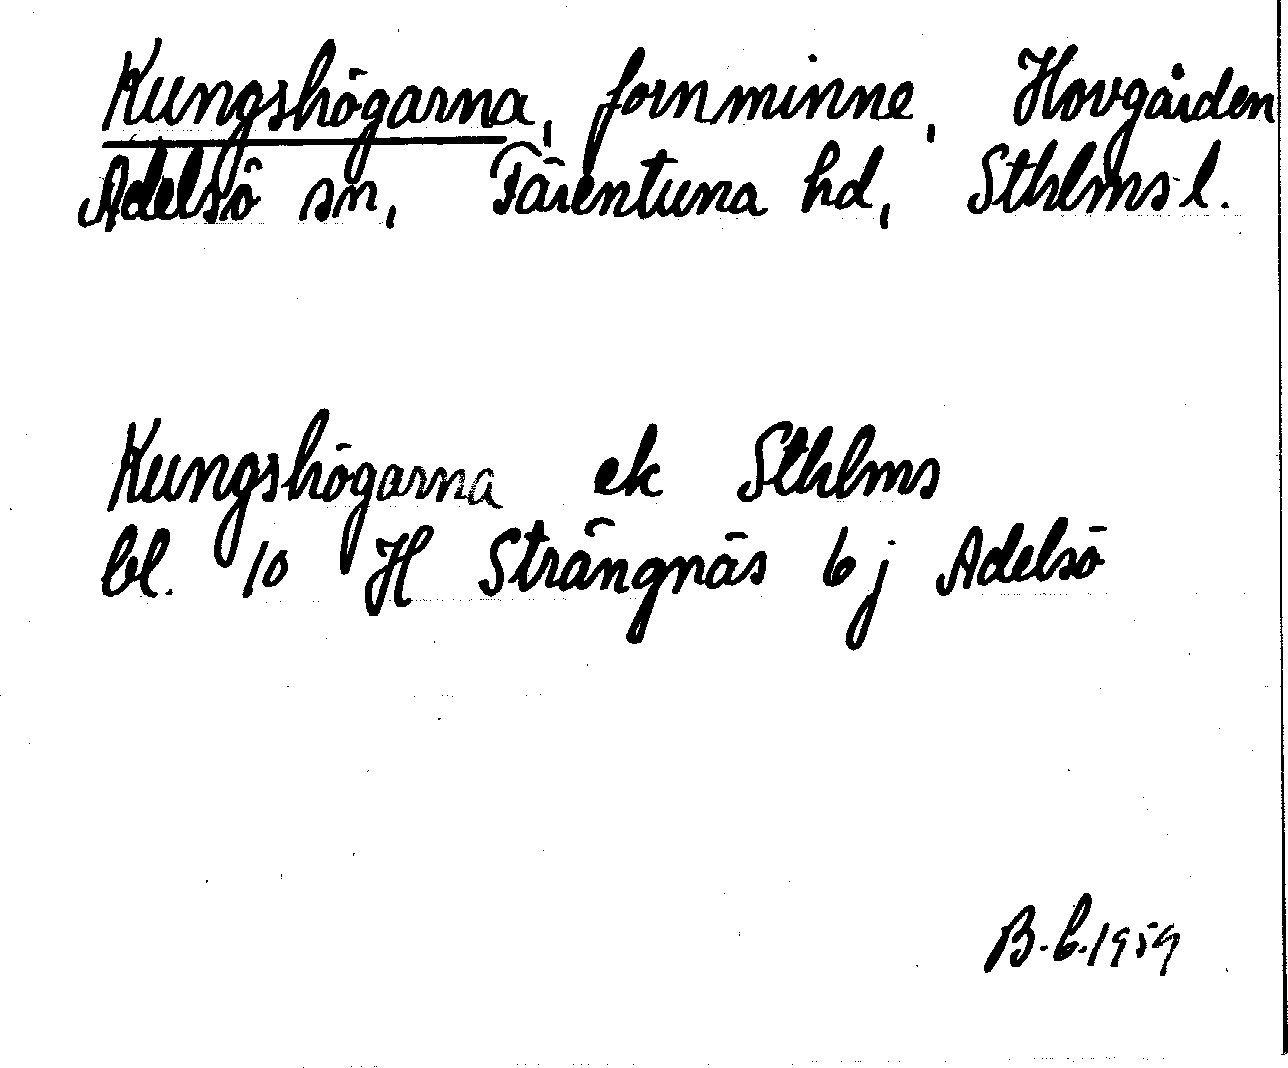 Kungshögarna, fornminne, Hovgården
Adelsö sn, Färentuna hd, Sthlms l.
Kungshögarna ek Sthlms
bl. 10 H Strängnäs 6 j Adelsö
B.b.1959